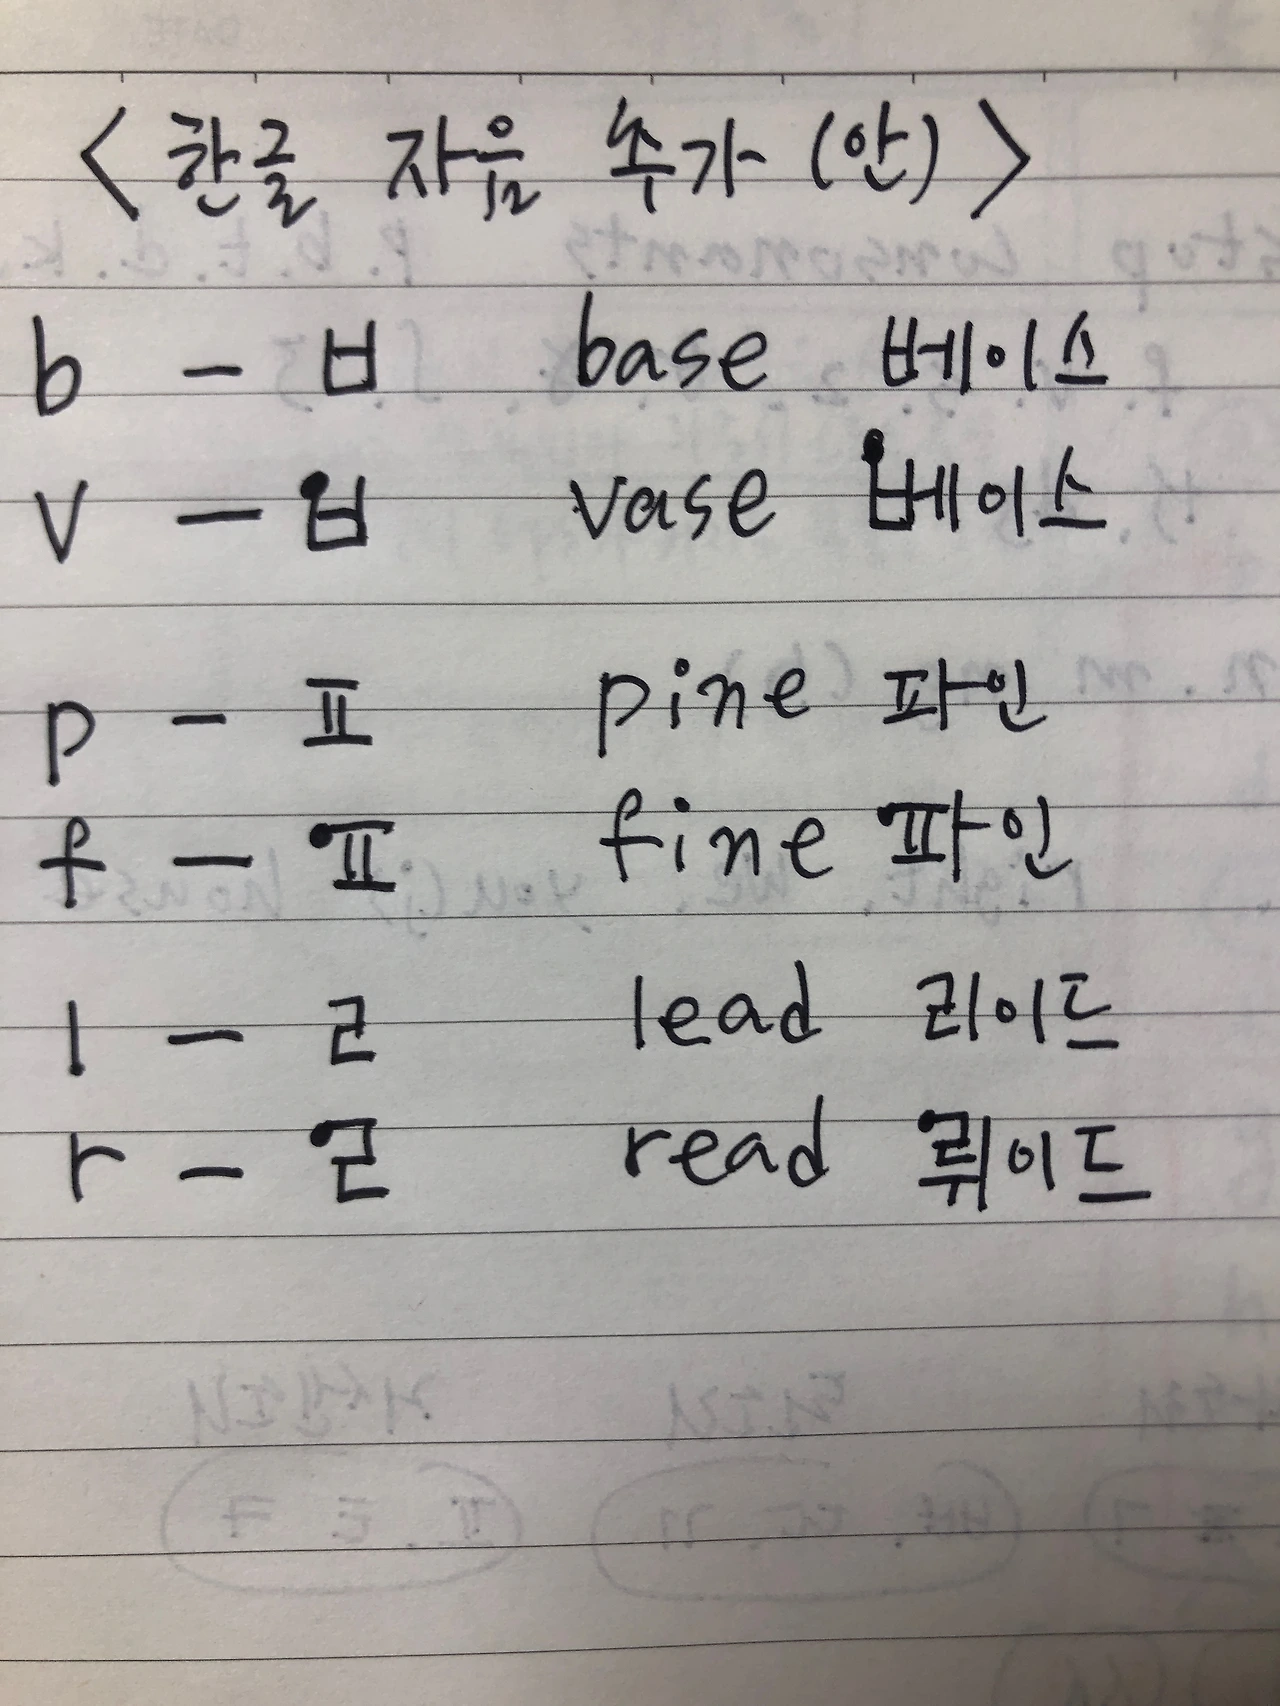 < 한글 자음 추가 (안) >
b - ㅂ base 베이스
v - ㅂ vase 베이스
p - ㅍ pine 파인
f - ㅍ fine 파인
l - ㄹ lead 리이드
r - ㄹ read 뤼이드